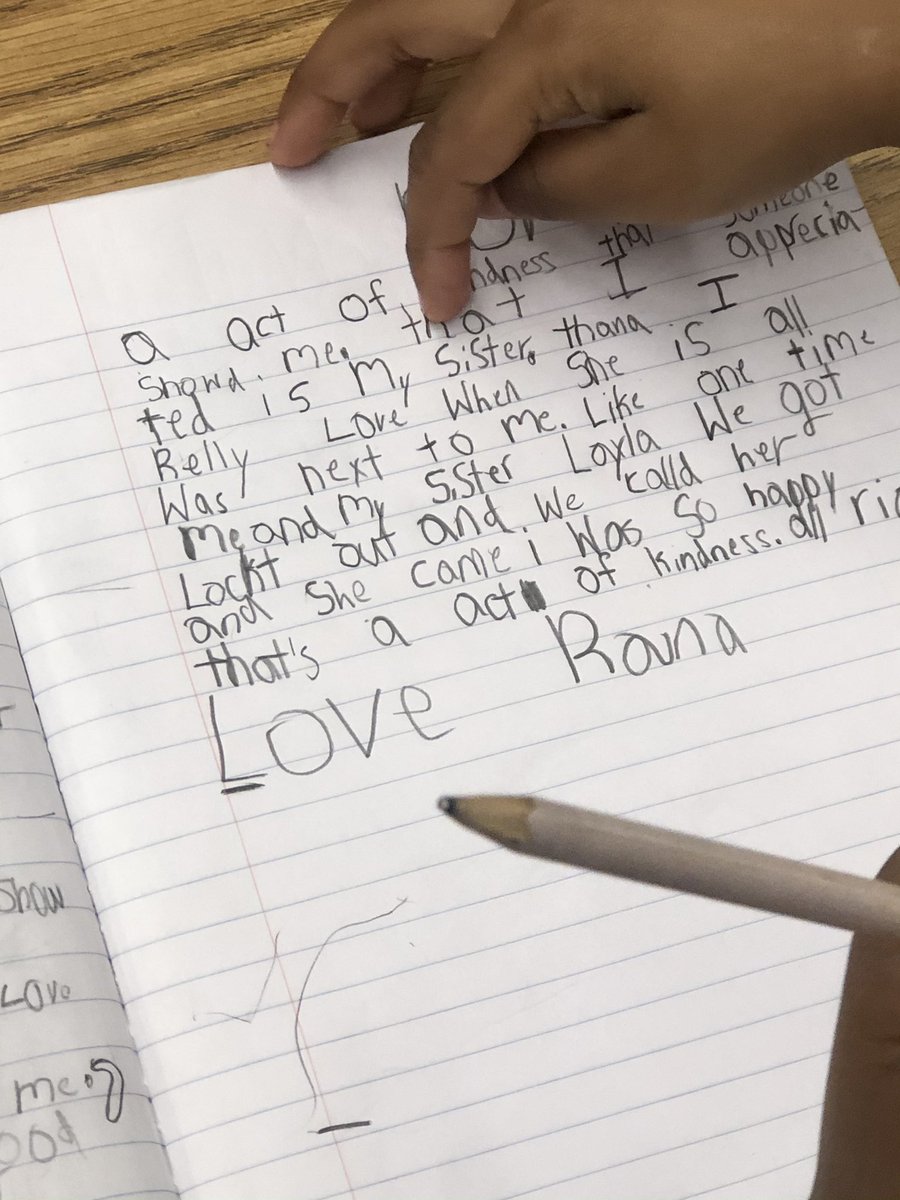 a act of kindness that someone
Showd. me. that I apprecia-
ted is My Sister. thana. I
Relly Love When She is all
Was next to me. Like one time
Me and My Sister Layla We got
Lockt out and. We calld her
and She came i Was So happy
that's a act of kindness. all ric
Love Rana
Show
Love
me.